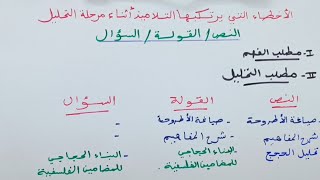 الأخطاء التي يرتكبها التلاميذ أثناء مرحلة التحليل
النص / القولة / السؤال
I- مطلب الفهم
II- مطلب التحليل
النص القولة السؤال
صياغة الأطروحة - صياغة الأطروحة -
شرح المفاهيم - شرح المفاهيم -
تحليل الحجج البناء الحجاجي - البناء الحجاجي
للمضامين الفلسفية للمضامين الفلسفية